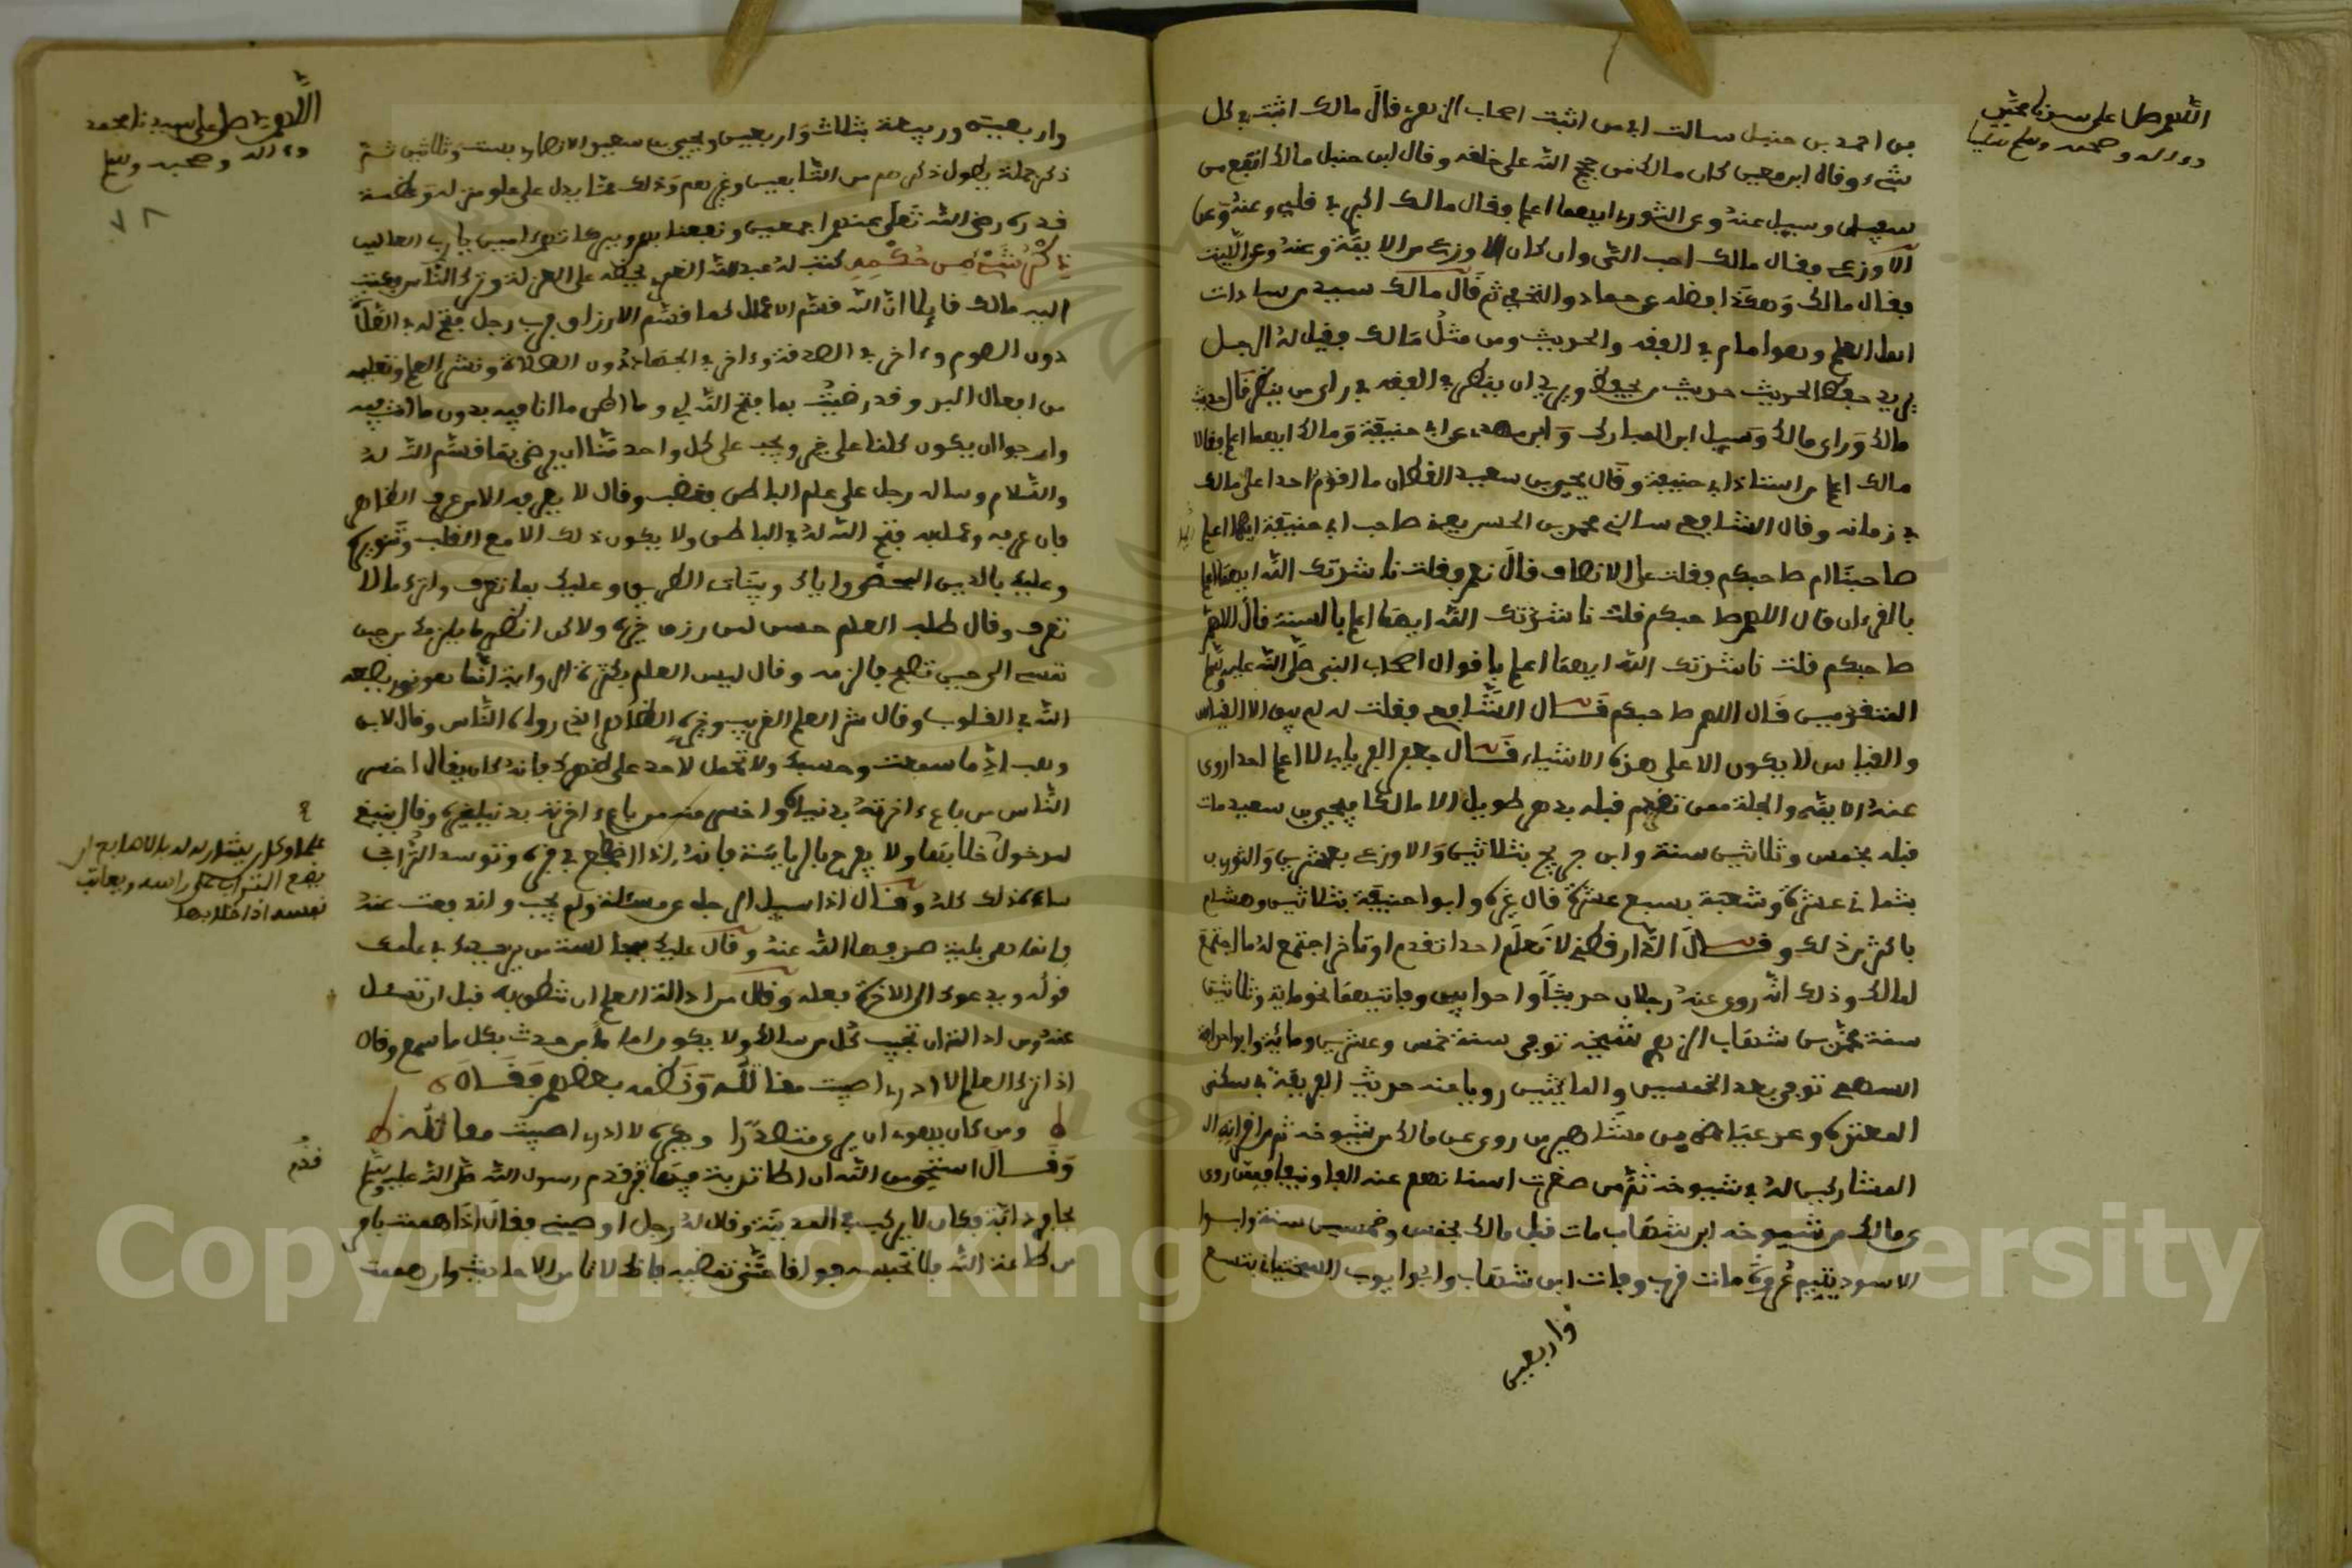 اللهم صل على سيدنا محمد
وءاله وصحبه وسلم تسليما
بن احمد بن حنبل سالت ابي من اثبت اصحاب الزهري فقال مالك اثبت في كل
شيء وقال ابن معين كان مالك من حجج الله على خلقه وقال ابن حنبل مالك اتبع من
سفيان وسيل عنه وعن الثوري ايهما اعلم فقال مالك اكبر في قلبي وعنه وعن
الاوزعي فقال مالك احب الي وان كان الاوزعي من الايمة وعنه وعن الليث
فقال مالك وهكذا فضله عن حماد والنخعي ثم قال مالك سيد من سادات
اهل العلم وهو امام في الفقه والحديث ومن مثل مالك وقيل له الرجل
يريد حفظ الحديث حديث من يحفظ ويريد ان ينظر في الفقه في راي من ينظر قال حديث
مالك وراي مالك وسيل ابن المبارك وابن مهدي عن ابي حنيفة ومالك ايهما اعلم فقالا
مالك اعلم من استاذ ابي حنيفة وقال يحيى بن سعيد القطان ما اقدم احدا على مالك
في زمانه وقال الشافعي سالني محمد بن الحسن يعني صاحب ابي حنيفة ايهما اعلم
صاحبنا ام صاحبكم فقلت على الانصاف قال نعم فقلت ناشدتك الله ايهما اعلم
بالقرءان قال اللهم صاحبكم قلت ناشدتك الله ايهما اعلم بالسنة قال اللهم
صاحبكم قلت ناشدتك الله ايهما اعلم باقوال اصحاب النبي صلى الله عليه وسلم
المتقدمين قال اللهم صاحبكم قال الشافعي فقلت له لم يبق الا القياس
والقياس لا يكون الا على هذه الاشياء قال جعفر الفريابي لا اعلم احدا روى
عنه الايمة والجلة ممن تقدم قبله بدهر طويل الا مالكا فيحيى بن سعيد مات
قبله بخمس وثلاثين سنة وابن جريج بثلاثين والاوزعي بعشرين والثوري
بثماني عشرة وشعبة بسبع عشرة قال غيره وابوا حنيفة بثلاثين وهشام
باكثر من ذلك وقال الدارقطني لا نعلم احدا تقدم او تاخر اجتمع له ما اجتمع
لمالك وذلك انه روى عنه رجلان حديثا واحدا بين وفاتيهما نحو ماية وثلاثين
سنة محمد بن شهاب الزهري شيخه توفي سنة خمس وعشرين ومائة وابو حذافة
السهمي توفي بعد الخمسين والمايتين رويا عنه حديث الفريعة في سكنى
المعتدة وعد عياض من مشاهير من روى عن مالك من شيوخه ثم من اقرانه الى
المشاركين له في شيوخه ثم من صغرت اسنانهم عنه الفا ونيفا فمن روى
عن مالك من شيوخه ابن شهاب مات قبل مالك بخمس وخمسين سنة وابوا
الاسود يتيم عروة مات قرب وفات ابن شهاب وايوا يوب السختياني بتسع
واربعين
اللهم صل على سيدنا محمد
وءاله وصحبه وسلم
٧٨
واربعين وربيعة بثلاث واربعين ويحيى بن سعيد الانصاري بست وثلاثين ثم
ذكر جملة يطول ذكرهم من التابعين وغيرهم وذلك مما يدل على علو منزله وعظمة
قدره رضي الله تعلى عنهم اجمعين ونفعنا بهم وببركاتهم ءامين يا رب العالمين
ذكر شيء من حكمه كتب له عبد الله العمري يحضه على العزلة وترك الناس فكتب
اليه مالك قايلا ان الله قسم الاعمال كما قسم الارزاق فرب رجل فتح له في الصلاة
دون الصوم وءاخر في الصدقة وءاخر في الجهاد دون الصلاة ونشر العلم وتعليمه
من افعال البر وقد رضيت بما فتح الله لي وما اظن ما انا فيه بدون ما انت فيه
وارجوا ان يكون كلنا على خير ويجب على كل واحد منا ان يرضى بما قسم الله له
والسلام وساله رجل على علم الباطن فغضب وقال لا يعرفه الا من عرف الظاهر
فان عرفه وعمل به فتح الله له في الباطن ولا يكون ذلك الا مع القلب وتنويره
وعليك بالدين المحض واياك وبنيات الطريق وعليك بما تعرف واترك ما لا
تعرف وقال طلب العلم حسن لمن رزق خيره ولاكن انظر ما يلزمك من حين
تمسي الى حين تصبح فالزمه وقال ليس العلم بكثرة الرواية انما هو نور يضعه
الله في القلوب وقال شر العلم الغريب وخيره الظاهر الذي رواه الناس وقال لابن
وهب اد ما سمعت وحسبك ولا تحمل لاحد على ظهرك فانه كان يقال اخسر
الناس من باع ءاخرته بدنياه واخسر منه من باع ءاخرته بدنيا غيره وقال ينبغي
لمن خول
علما وكان يشار له بالاصابع ان
يضع التراب على راسه ويعاتب
نفسه اذا خلا بها
ولا يفرح بالرياسة فانه اذا اضطجع في قبره وتوسد التراب
ساءه ذلك كله وقال اذا سيل الرجل عن مسئلة ولم يجب واندفعت عنه
فانما هي بلية صرفها الله عنه وقال عليك بمجالسة من يزيدك في علمك
قوله ويدعوك الى الاخرة فعله وقال من ادالة العلم ان تنطق به قبل ان تسئل
عنه ومن ادالته ان تجيب كل من سالك ولا يكون اماما من حدث بكل ما سمع وقال
اذا ترك العالم لا ادري اصيبت مقاتله ونظمه بعضهم فقال
ومن كان يهوى ان يرى متصدرا ويكره لا ادري اصيبت مقاتله
وقال استحيي من الله ان اطا تربة فيها قبر رسول الله صلى الله عليه وسلم
قدم
بحافر دابة فكان لا يركب في المدينة وقال له رجل اوصيني فقال اذا هممت بامر
من طاعة الله فلا تحبسه فواقا حتى تمضيه فانك لا تامن الاحداث واذا هممت
Copyright © King Saud University